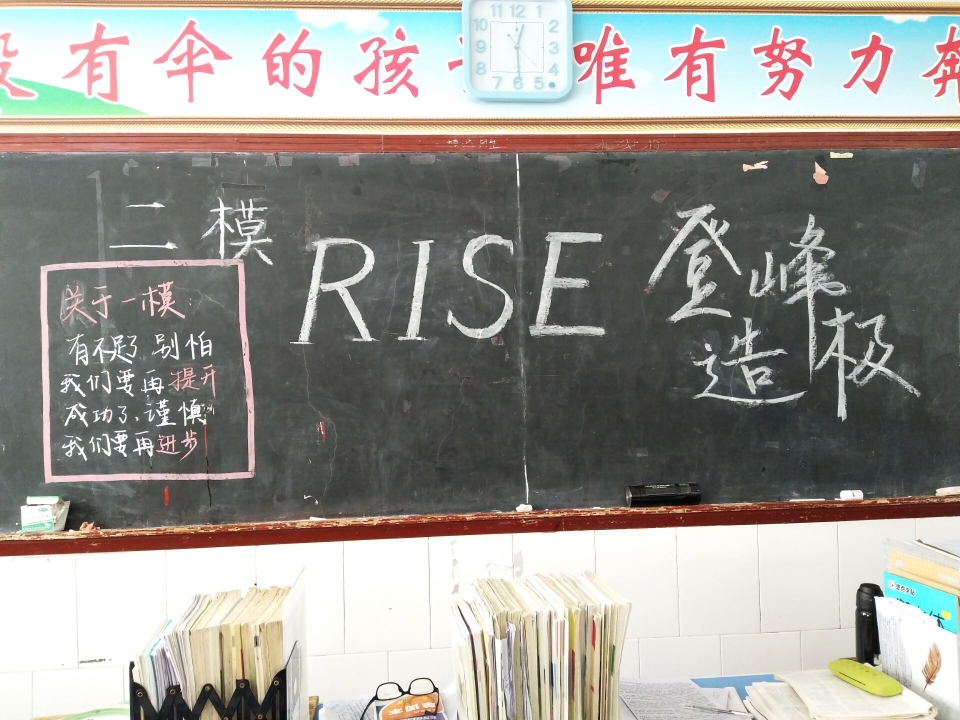 没有伞的孩 唯有努力奔
11 12 1
10 2
9 3
8 4
7 6 5
二模
RISE
登峰
造极
关于一模：
有不足了 别怕
我们要再提升
成功了、谨慎
我们要再进步